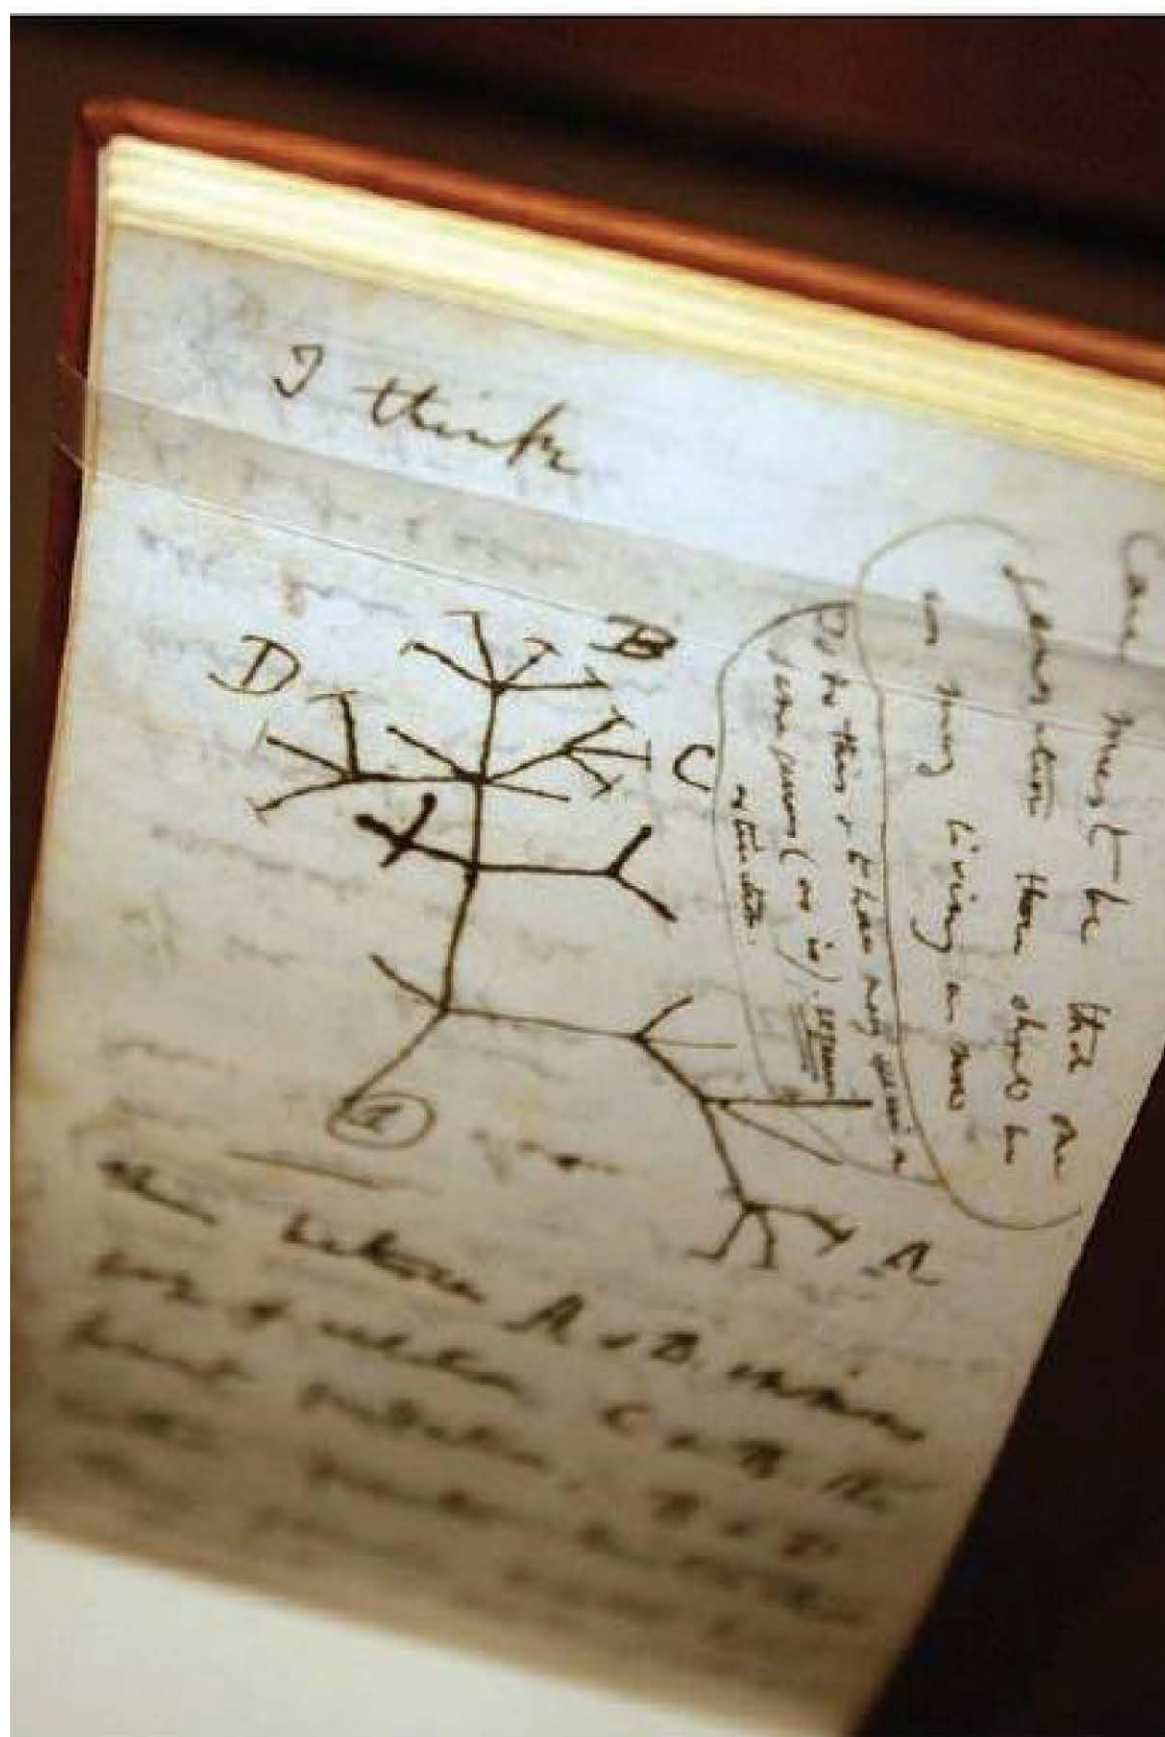 I think
Case must be that one
generation then should be
as many living as now
To do this & to have many species in
same genus (as is). requires
extinction.
D
B
C
A
1
Thus between A & B. immense
gap of relation. C & B. the
finest gradation, B & D
rather greater distinction